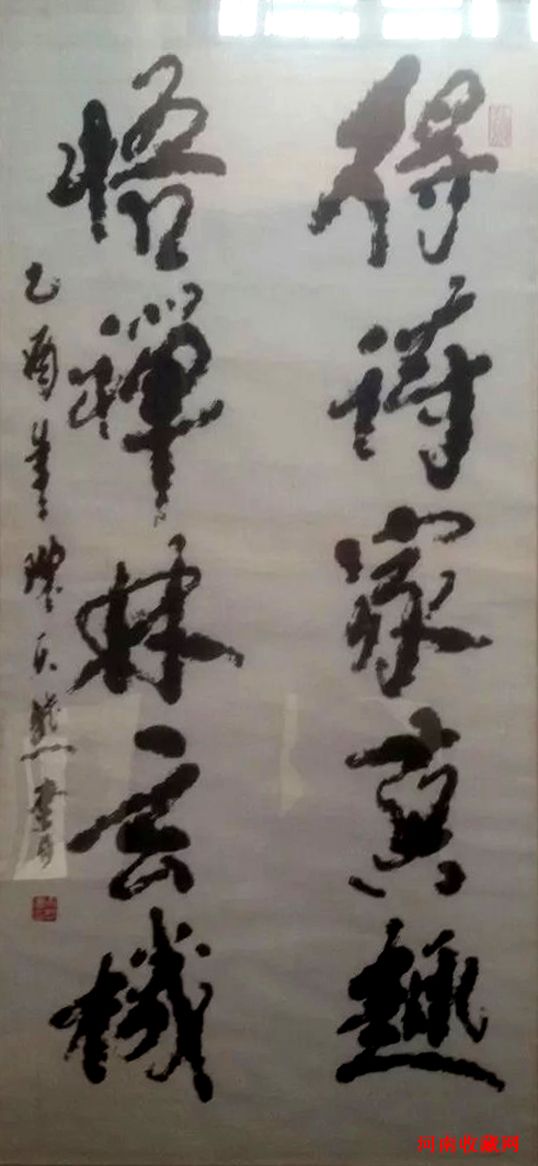 得詩家真趣
悟禪林玄機
乙酉年陳天然書
河南收藏网